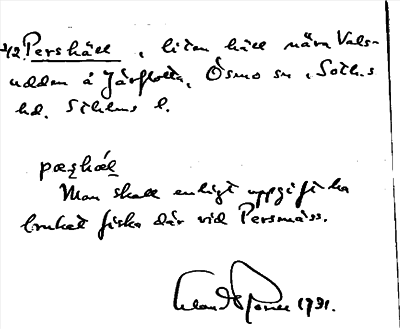 42. Pershäll, liten häll nära Vals-
udden å Järflotta, Ösmo sn, Soth.s
hd. Sthlms l.
pæʂhæl̥
Man skall enligt uppgift ha
brukat fiska där vid Persmäss.
1931.